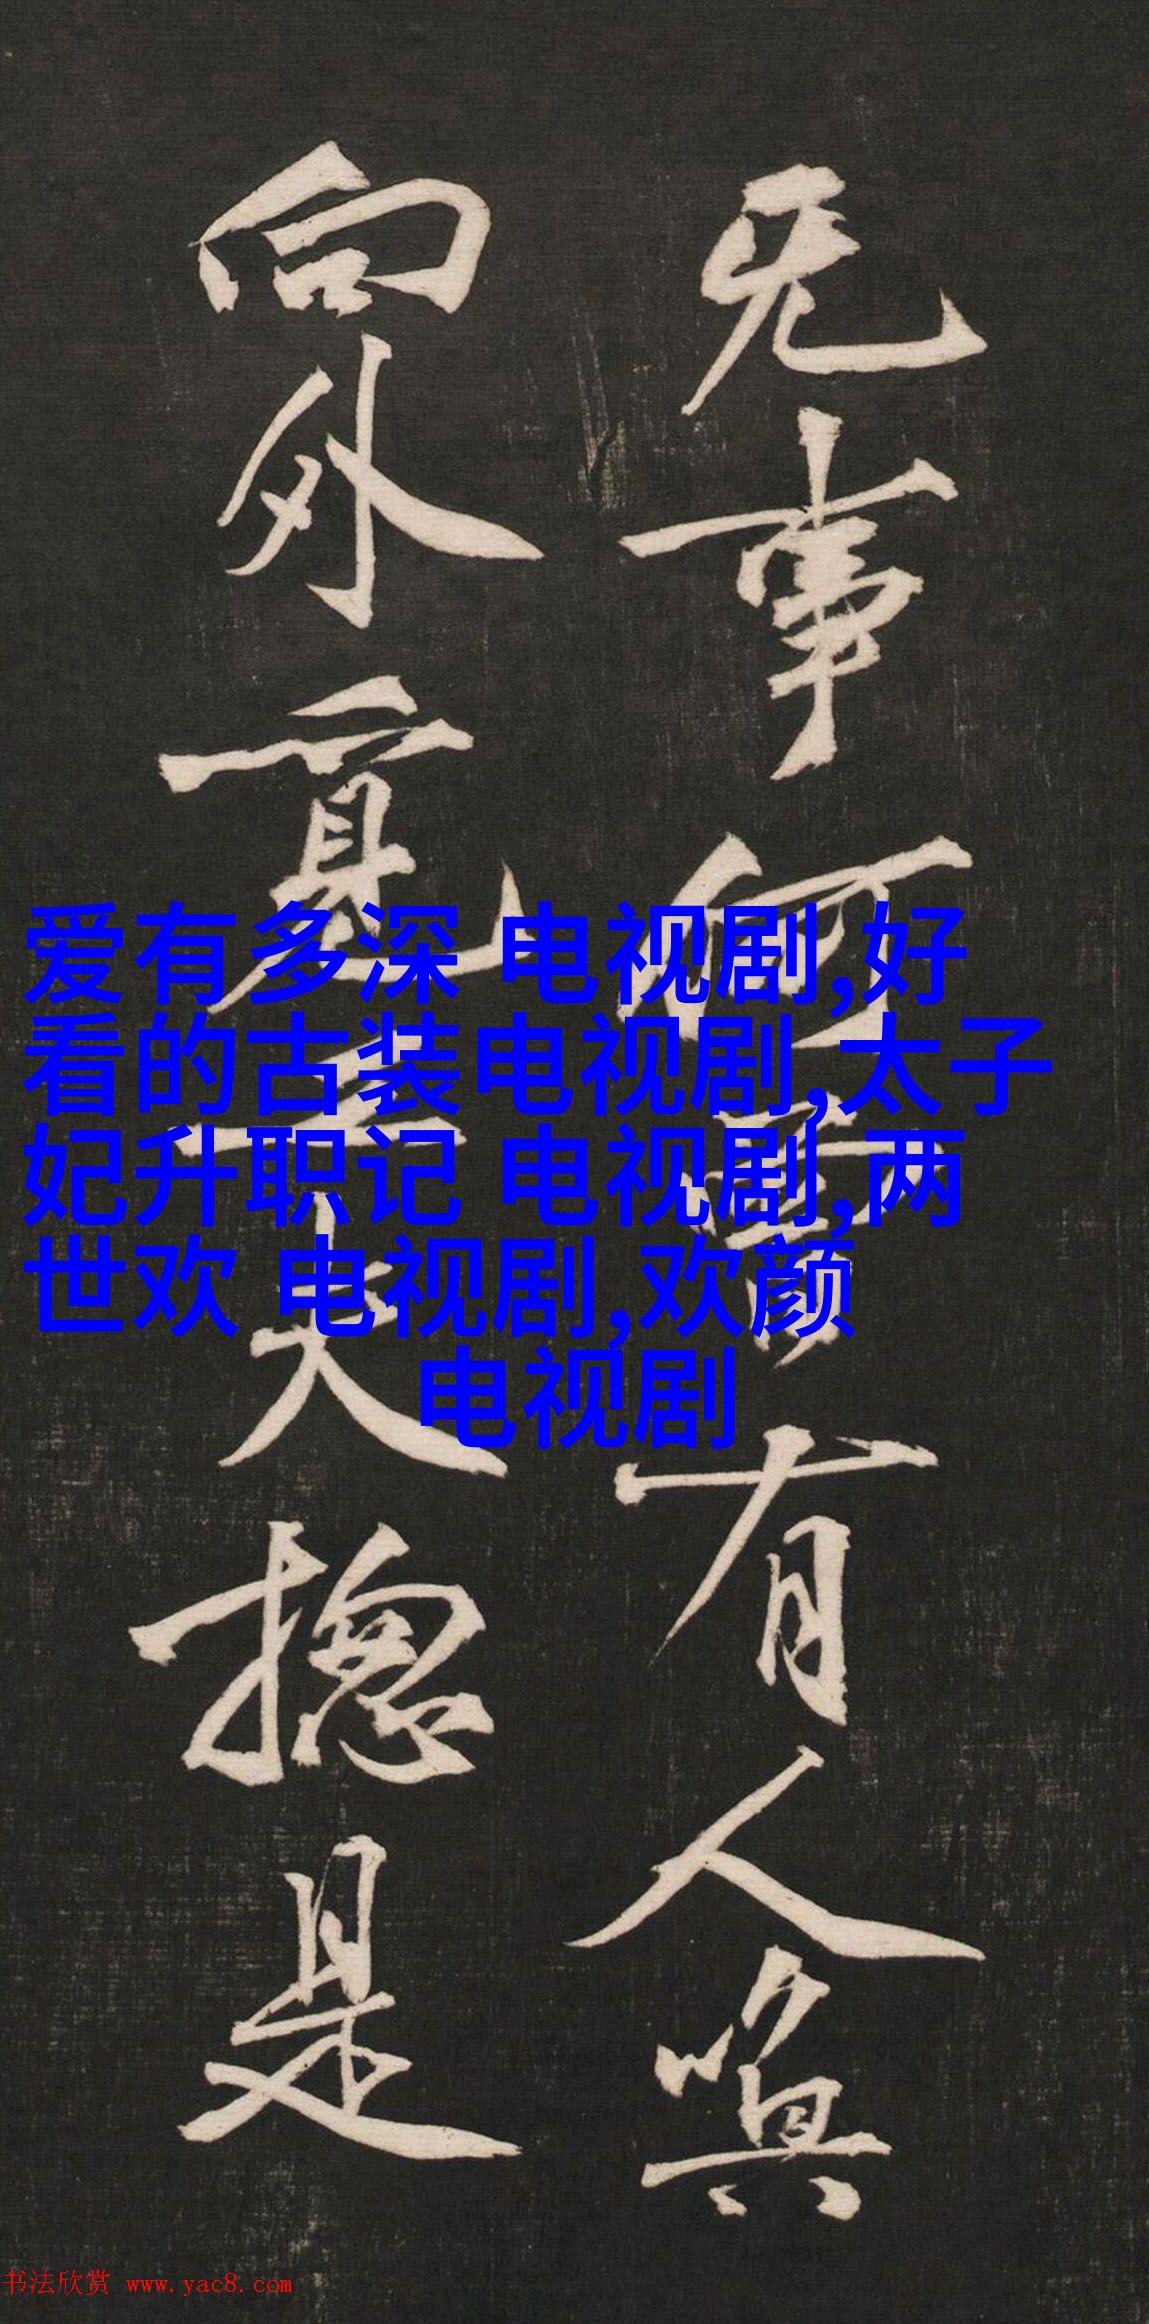 旡事何有人喚
向外覓工夫揔是
爱有多深 电视剧,好
看的古装电视剧,太子
妃升职记 电视剧,两
世欢 电视剧,欢颜
电视剧
书法欣赏 www.yac8.com